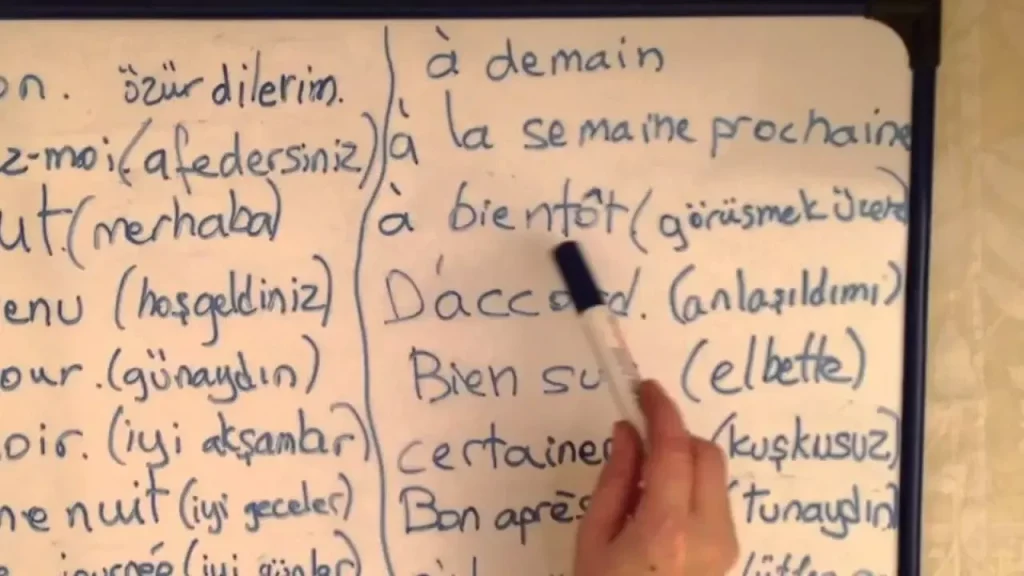 on. özür dilerim.
z-moi (afedersiniz)
ut. (merhaba)
enu (hoşgeldiniz)
our. (günaydın)
oir. (iyi akşamlar)
ne nuit (iyi geceler)
journée (iyi günler)
à demain
à la semaine prochaine
à bientôt (görüsmek üzere)
D'accord. (anlaşıldımı)
Bien su (elbette)
certaine (kuşkusuz)
Bon après (Tunaydın)